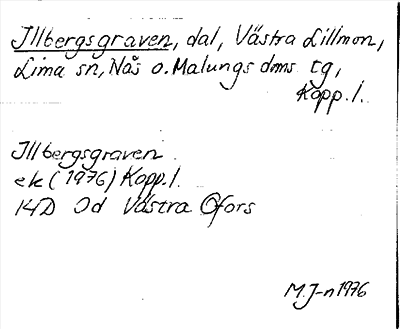 Illbergsgraven, dal, Västra Lillmon,
Lima sn, Nås o. Malungs dms tg,
Kopp. l.
Illbergsgraven
ek (1976) Kopp. l.
14D 0d Västra Ofors
M.J-n 1976